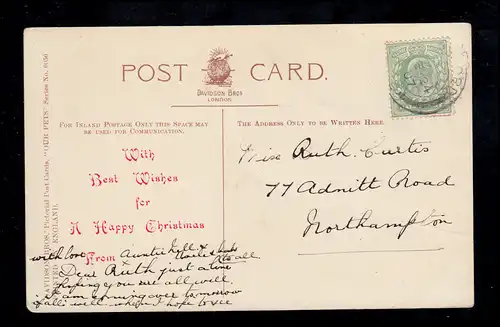 POST CARD.
DAVIDSON BROS
LONDON.
FOR INLAND POSTAGE ONLY THIS SPACE MAY
BE USED FOR COMMUNICATION.
THE ADDRESS ONLY TO BE WRITTEN HERE.
With
Best Wishes
for
A Happy Christmas
From Auntie Nell &
with love
to all
Dear Ruth just a line
hoping you are all well.
I am coming over tomorrow
if all's well. when I hope to see
Miss Ruth. Curtis
77 Adnitt Road
Northampton
DAVIDSON BROS.' Pictorial Post Cards, "OUR PETS" Series No. 6056